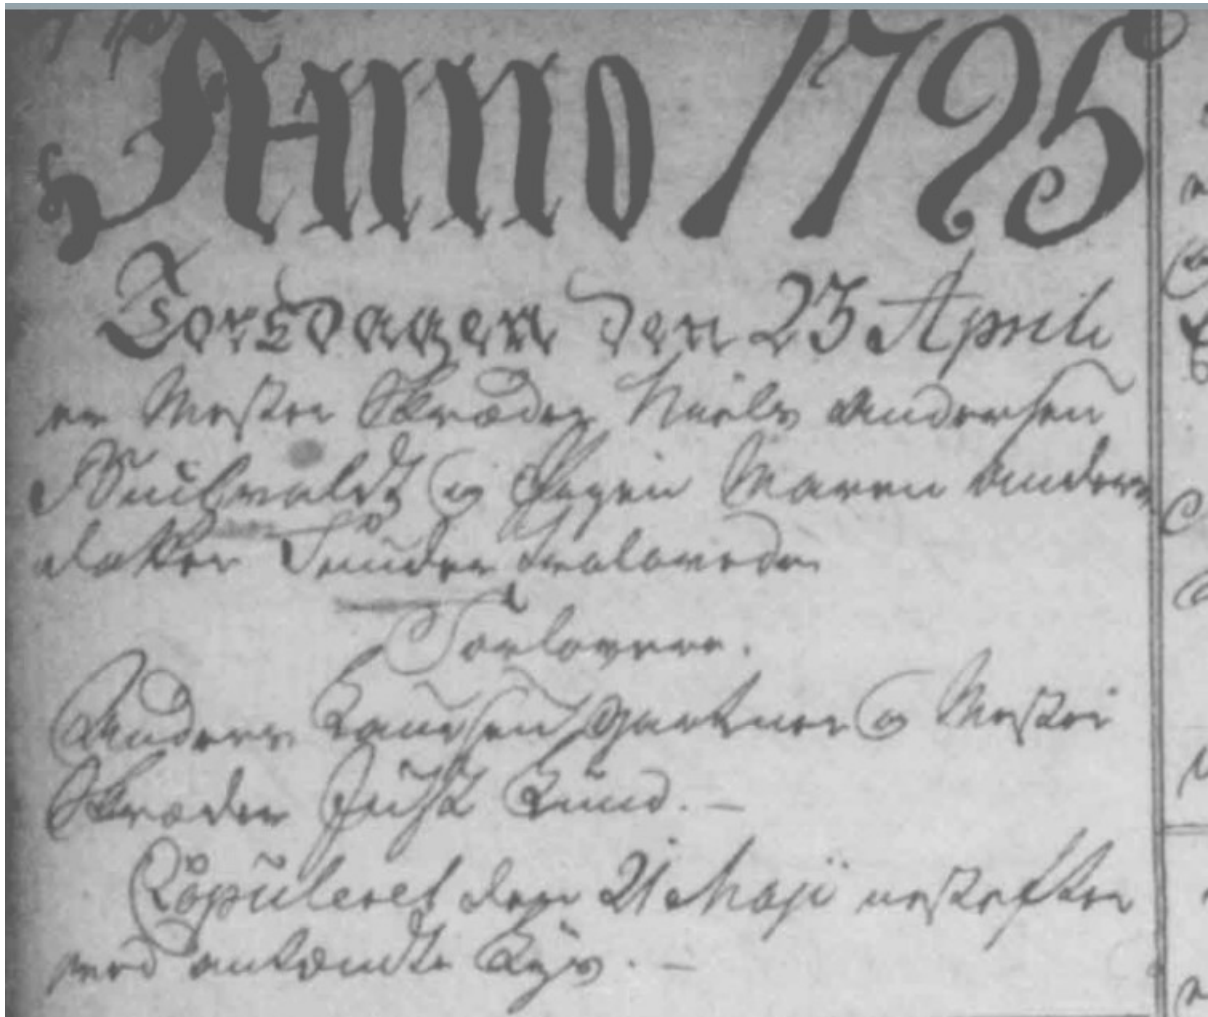 Anno 1795
Torsdagen den 23 Aprili
er Mester Skræder Niels Andersen
og Pigen Maren Anders
datter Trolovede
Forlovere.
Anders Laursen Gartner og Mester
Skræder Just Lund. -
Copuleret den 21 Maji nestefter
med antændte Lys. -